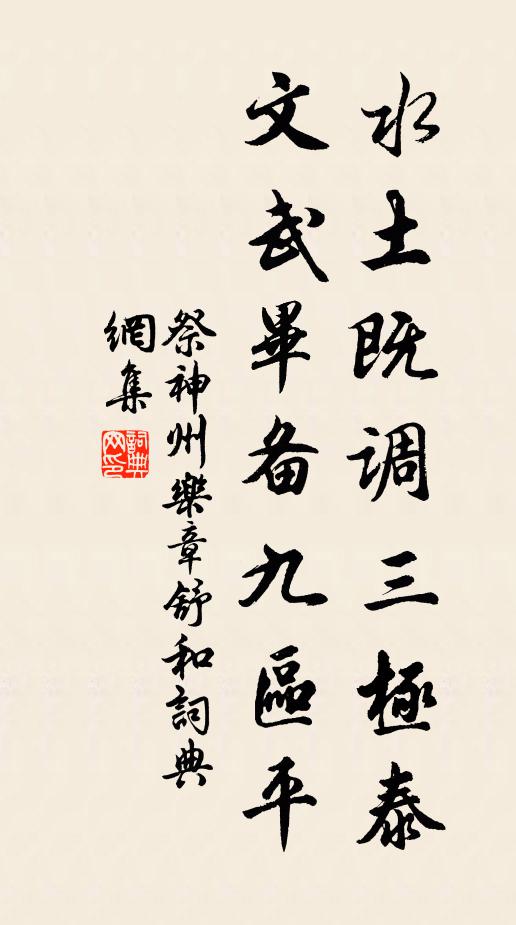 水土既调三極泰
文武畢备九區平
祭神州樂章舒和詞典
網集
詞典
网印